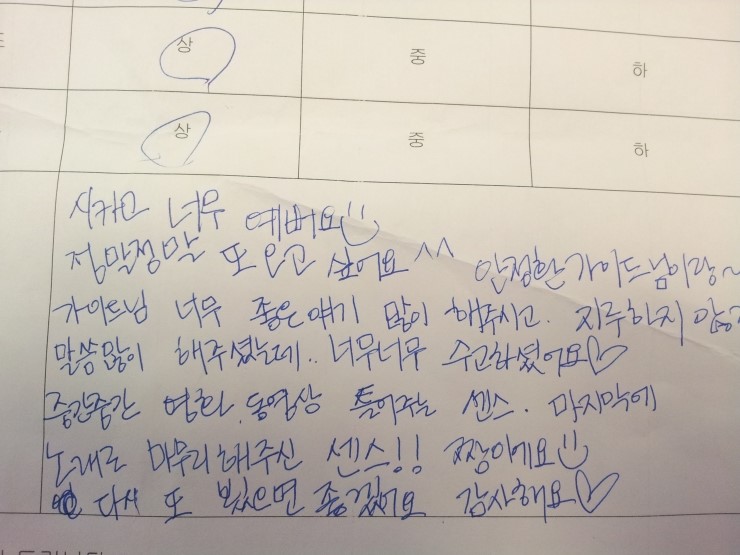 상 중 하
상 중 하
시카고 너무 예뻐요
정말정말 또 오고 싶어요 ^^ 안정한 가이드님이랑~
가이드님 너무 좋은 얘기 많이 해주시고. 지루하지 않게
말씀많이 해주셨는데.. 너무너무 수고하셨어요♡
중간중간 영화, 동영상 틀어주는 센스. 마지막에
노래로 마무리해주신 센스!! 짱이에요
다시 또 뵀으면 좋겠어요 감사해요♡